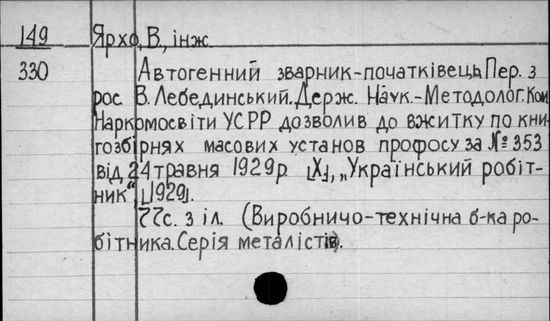 149 Ярхо, В., інж.
330 Автогенний зварник-початківець. Пер. з
рос. В. Лебединський. Держ. Наук.-Методолог. Ком.
Наркомосвіти УСРР дозволив до вжитку по кни-
гозбірнях масових установ профосу за № 353
від 24 травня 1929 р. [Х.], „Український робіт-
ник“ [1929].
77с. з іл. (Виробничо-технічна б-ка ро-
бітника. Серія металістів).